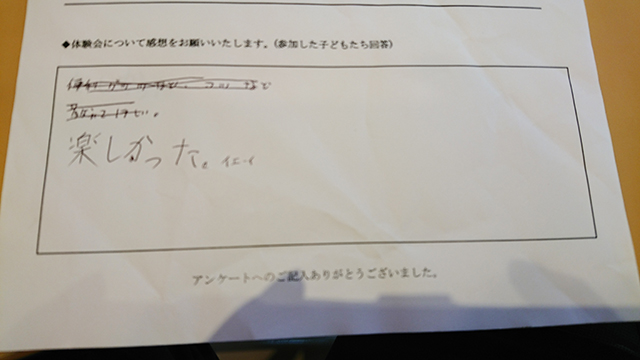 ◆体験会について感想をお願いいたします。(参加した子どもたち回答)
楽しかった。イエーイ
アンケートへのご記入ありがとうございました。